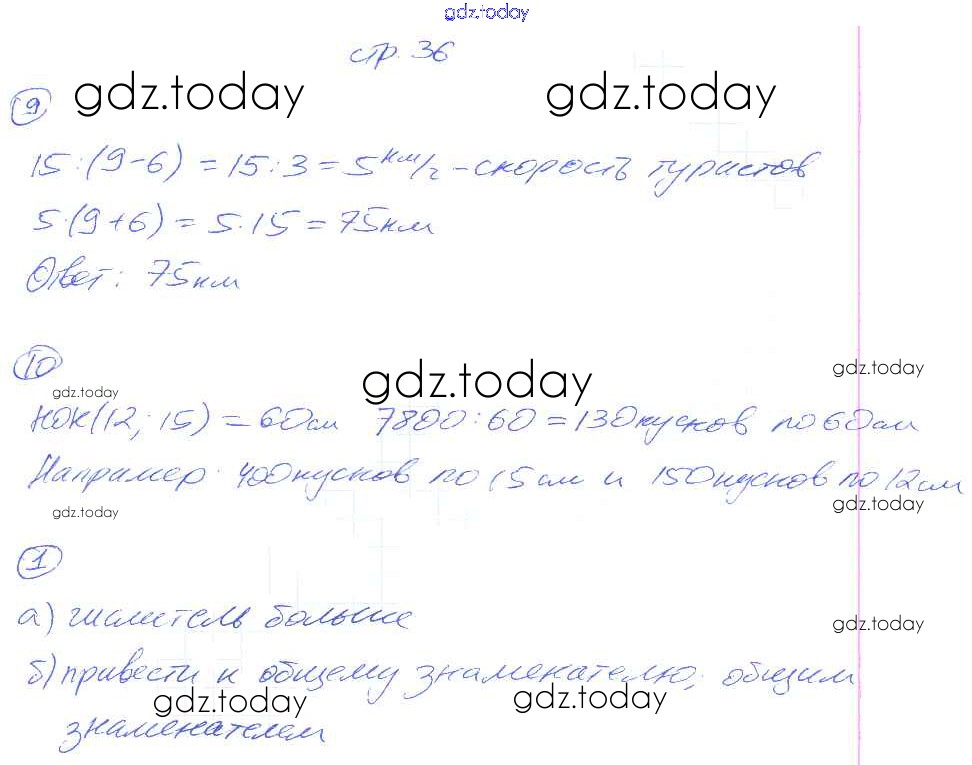 gdz.today
стр. 36
gdz.today gdz.today
9
15:(9-6) = 15:3 = 5 км/г - скорость туристов
5·(9+6) = 5·15 = 75км
Ответ: 75км
10
gdz.today gdz.today gdz.today
НОК(12; 15) = 60см 7800:60 = 130кусков по 60см
Например: 400кусков по 15см и 150кусков по 12см
gdz.today gdz.today
1
а) числитель больше
gdz.today
б) привести к общему знаменателю; общим
gdz.today gdz.today
знаменателем